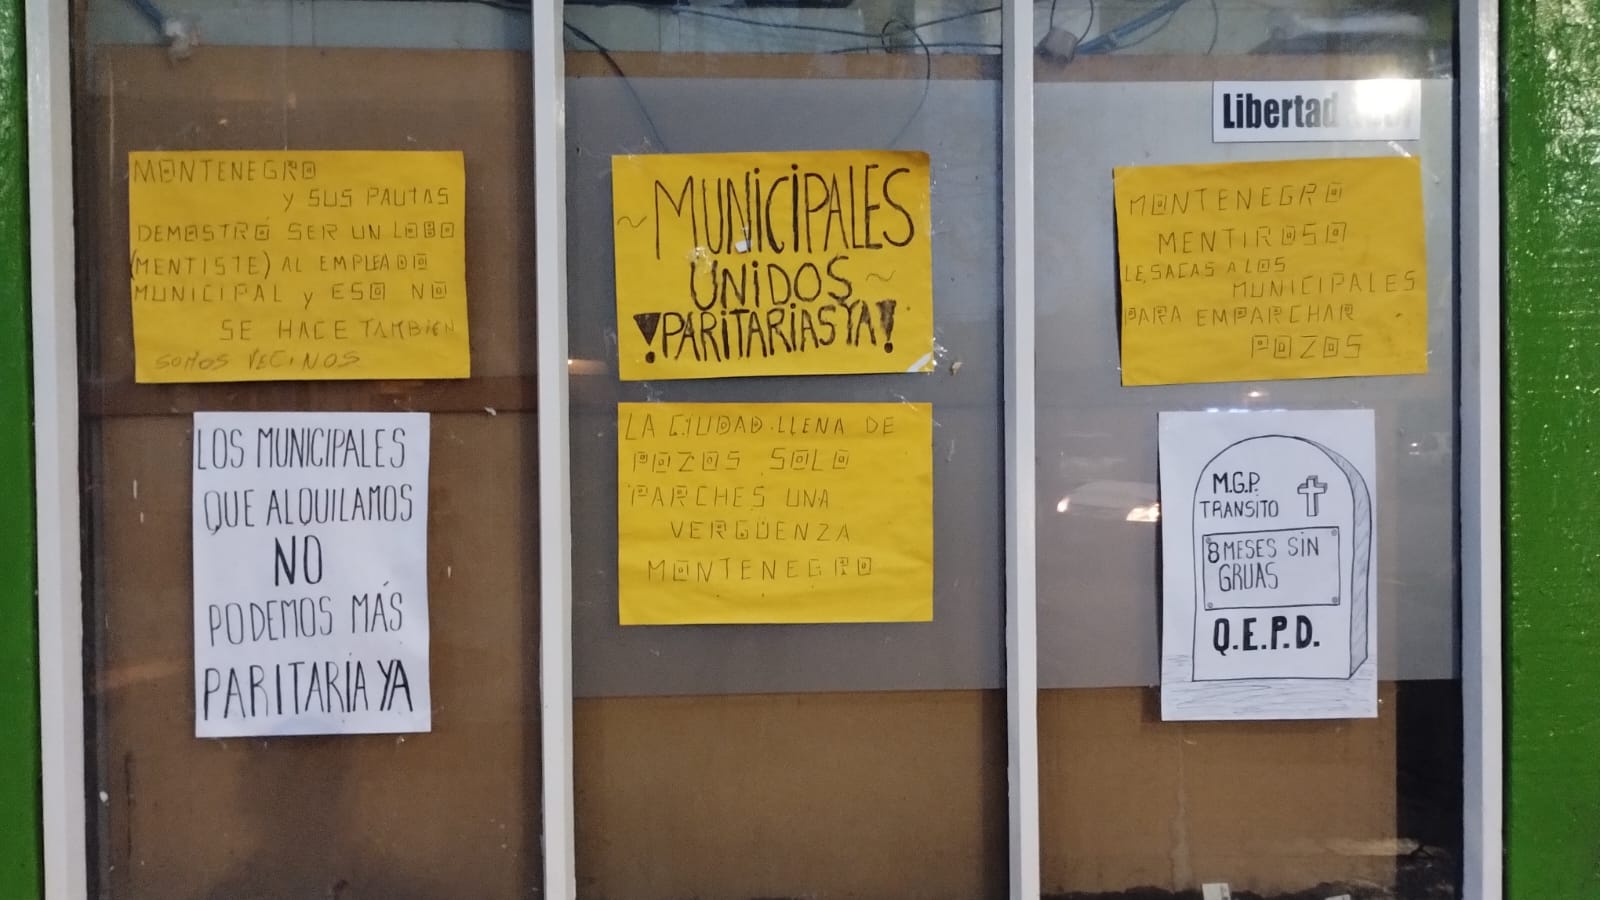 MONTENEGRO
y SUS PAUTAS
DEMOSTRÓ SER UN LOBO
(MENTISTE) AL EMPLEADO
MUNICIPAL y ESO NO
SE HACE TAMBIEN
SOMOS VECINOS
~MUNICIPALES
UNIDOS~
¡PARITARIAS YA!
Libertad
MONTENEGRO
MENTIROSO
LE SACAS A LOS
MUNICIPALES
PARA EMPARCHAR
POZOS
LOS MUNICIPALES
QUE ALQUILAMOS
NO
PODEMOS MÁS
PARITARÍA YA
LA CIUDAD LLENA DE
POZOS SOLO
PARCHES UNA
VERGÜENZA
MONTENEGRO
M.G.P.
TRANSITO
8 MESES SIN
GRUAS
Q.E.P.D.